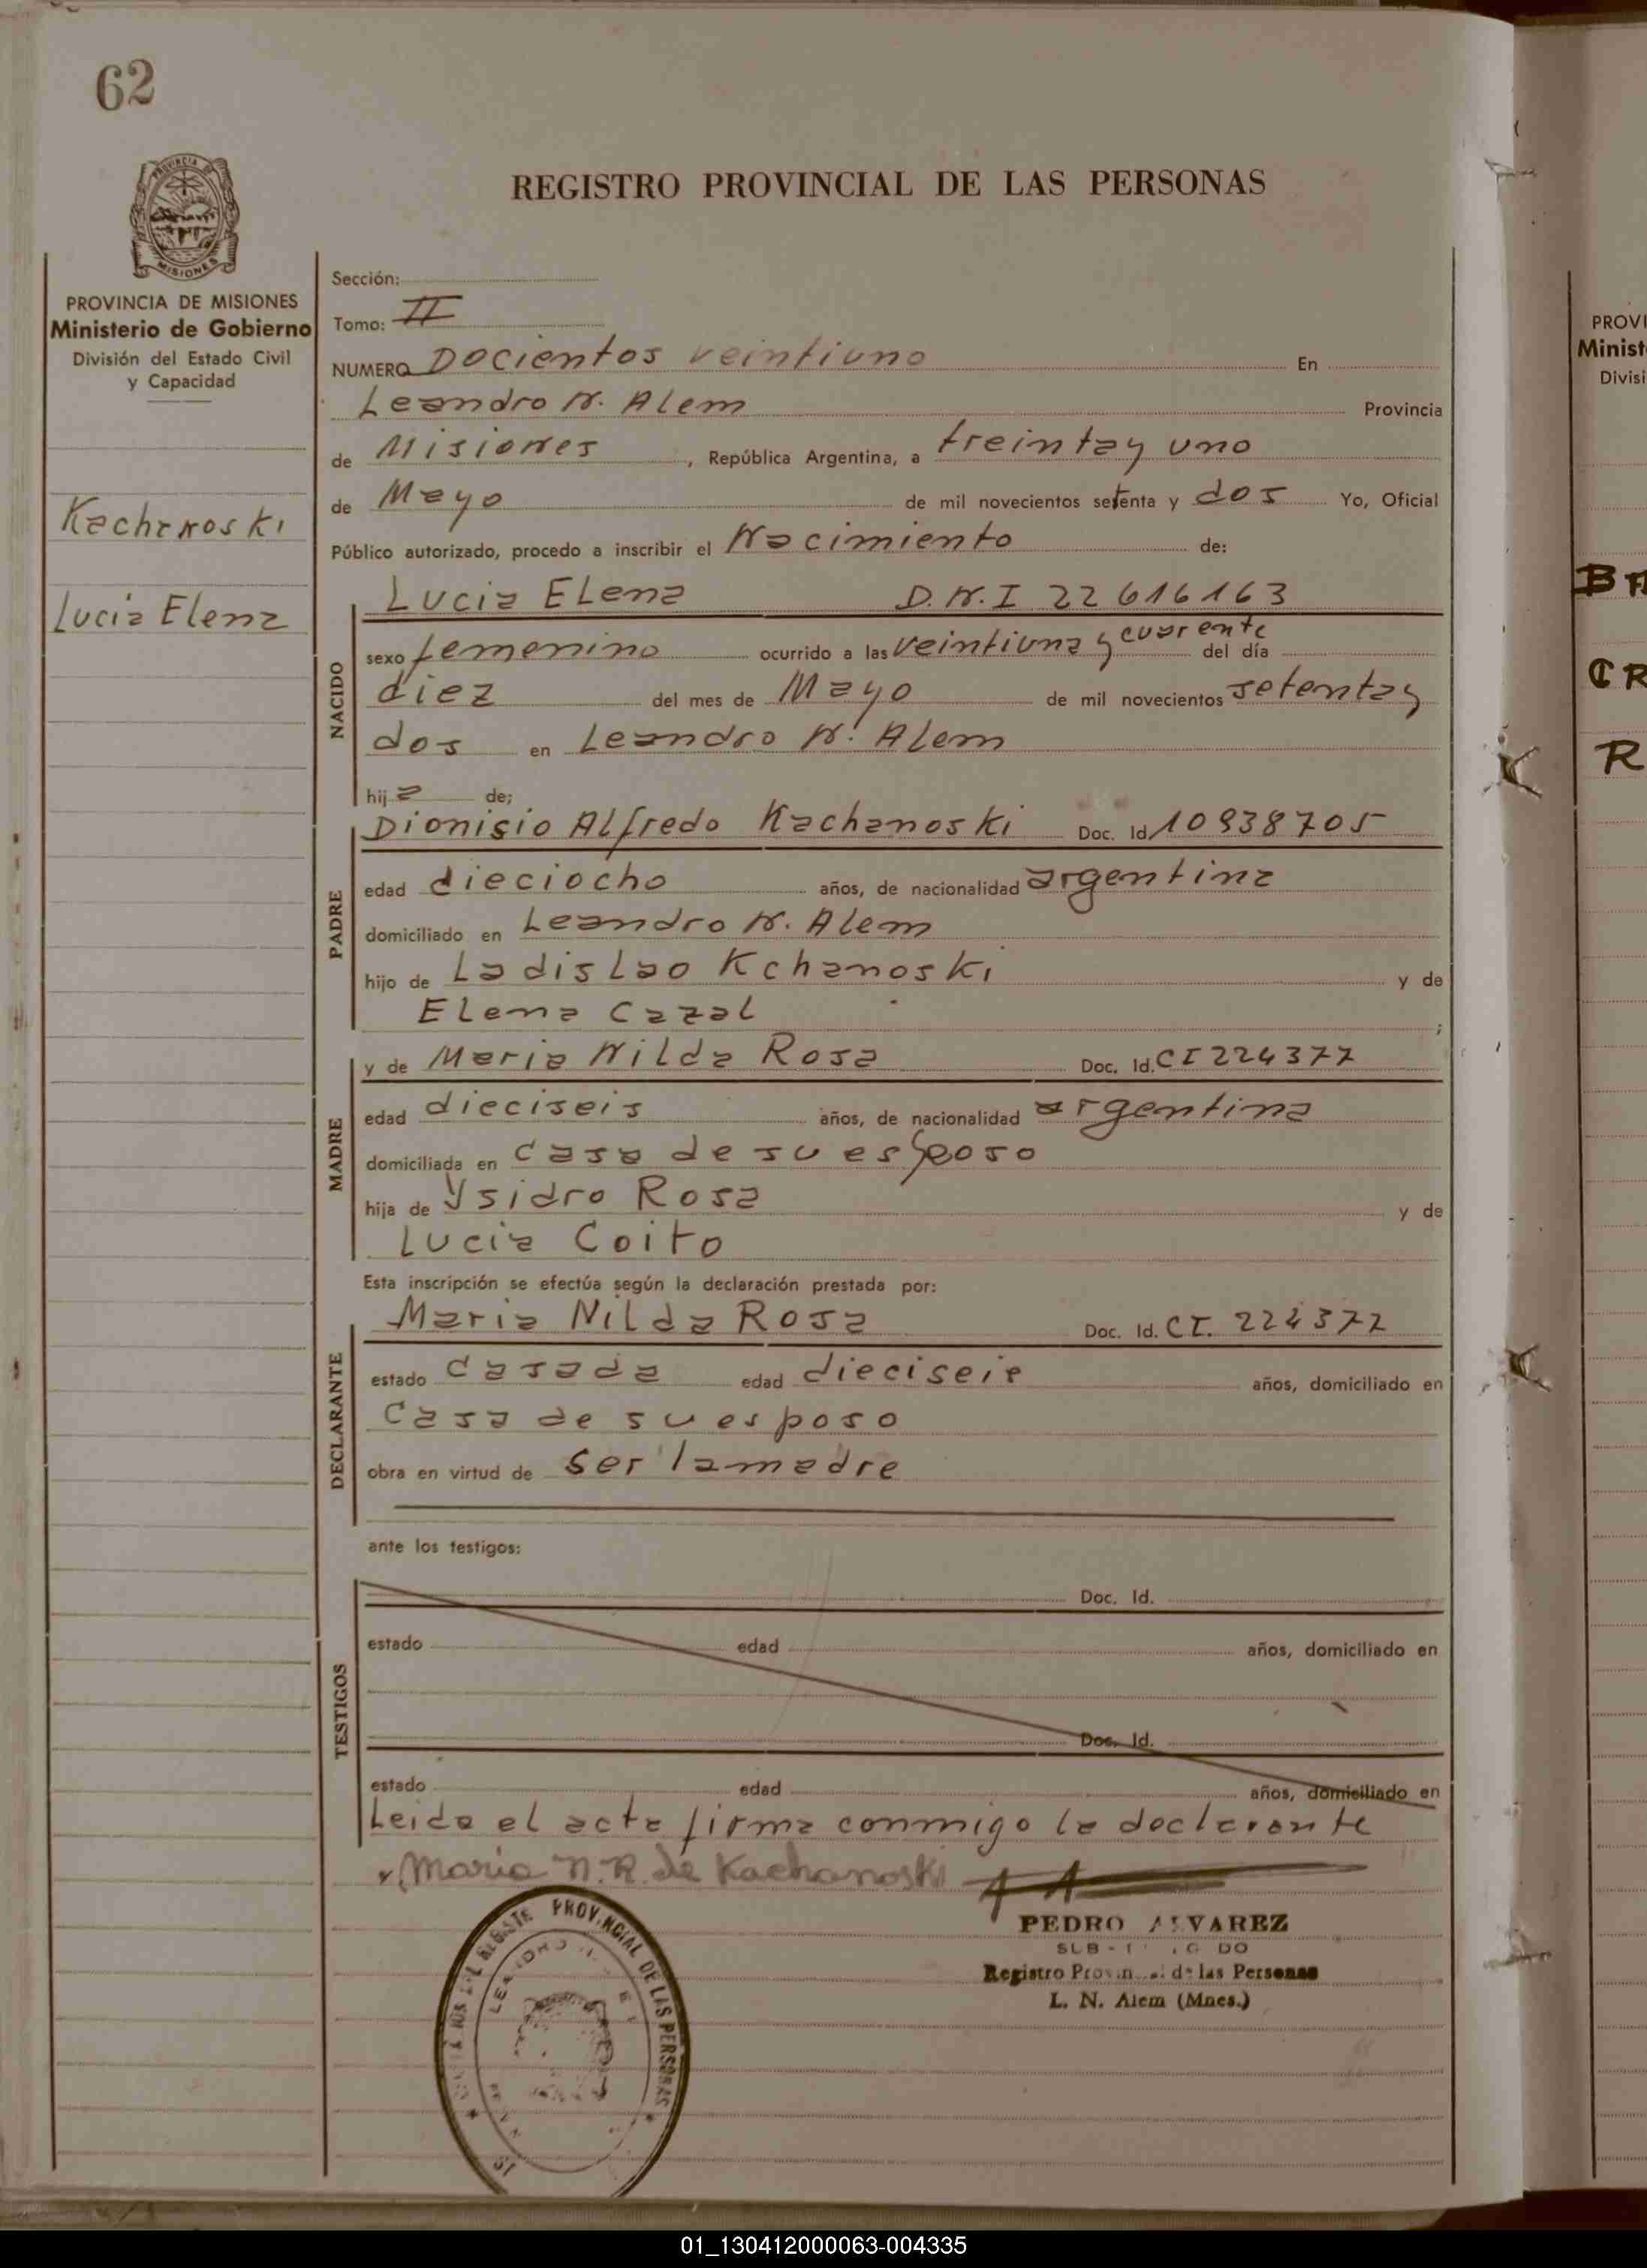 62
PROVINCIA DE
MISIONES
PROVINCIA DE MISIONES
Ministerio de Gobierno
División del Estado Civil
y Capacidad
Kachanoski
Lucia Elena
REGISTRO PROVINCIAL DE LAS PERSONAS
Sección:
Tomo: II
NUMERO Docientos veintiuno En
Leandro N. Alem Provincia
de Misiones, República Argentina, a treinta y uno
de Mayo de mil novecientos setenta y dos Yo, Oficial
Público autorizado, procedo a inscribir el Nacimiento de:
Lucia Elena D.N.I 22616163
NACIDO
sexo femenino ocurrido a las veintiuna y cuarenta del día
diez del mes de Mayo de mil novecientos setenta y
dos en Leandro N. Alem
hija de;
PADRE
Dionisio Alfredo Kachanoski Doc. Id 10938705
edad dieciocho años, de nacionalidad argentina
domiciliado en Leandro N. Alem
hijo de Ladislao Kchanoski y de
Elena Cazal ;
MADRE
y de Maria Nilda Rosa Doc. Id. CI 224377
edad dieciseis años, de nacionalidad argentina
domiciliada en casa de su esposo
hija de Ysidro Rosa y de
Lucia Coito
Esta inscripción se efectúa según la declaración prestada por:
DECLARANTE
Maria Nilda Rosa Doc. Id. CI. 224377
estado casada edad dieciseis años, domiciliado en
Casa de su esposo
obra en virtud de ser la madre
ante los testigos:
TESTIGOS
Doc. Id.
estado edad años, domiciliado en
Doc. Id.
estado edad años, domiciliado en
Leida el acta firma conmigo la declarante
Maria N.R. de Kachanoski
PEDRO ALVAREZ
Registro Provincial de las Personas
L. N. Alem (Mnes.)
PROVINCIAL DE LAS PERSONAS
LEANDRO N.
PROVI
Minist
Divisi
BA
CR
R
01_130412000063-004335